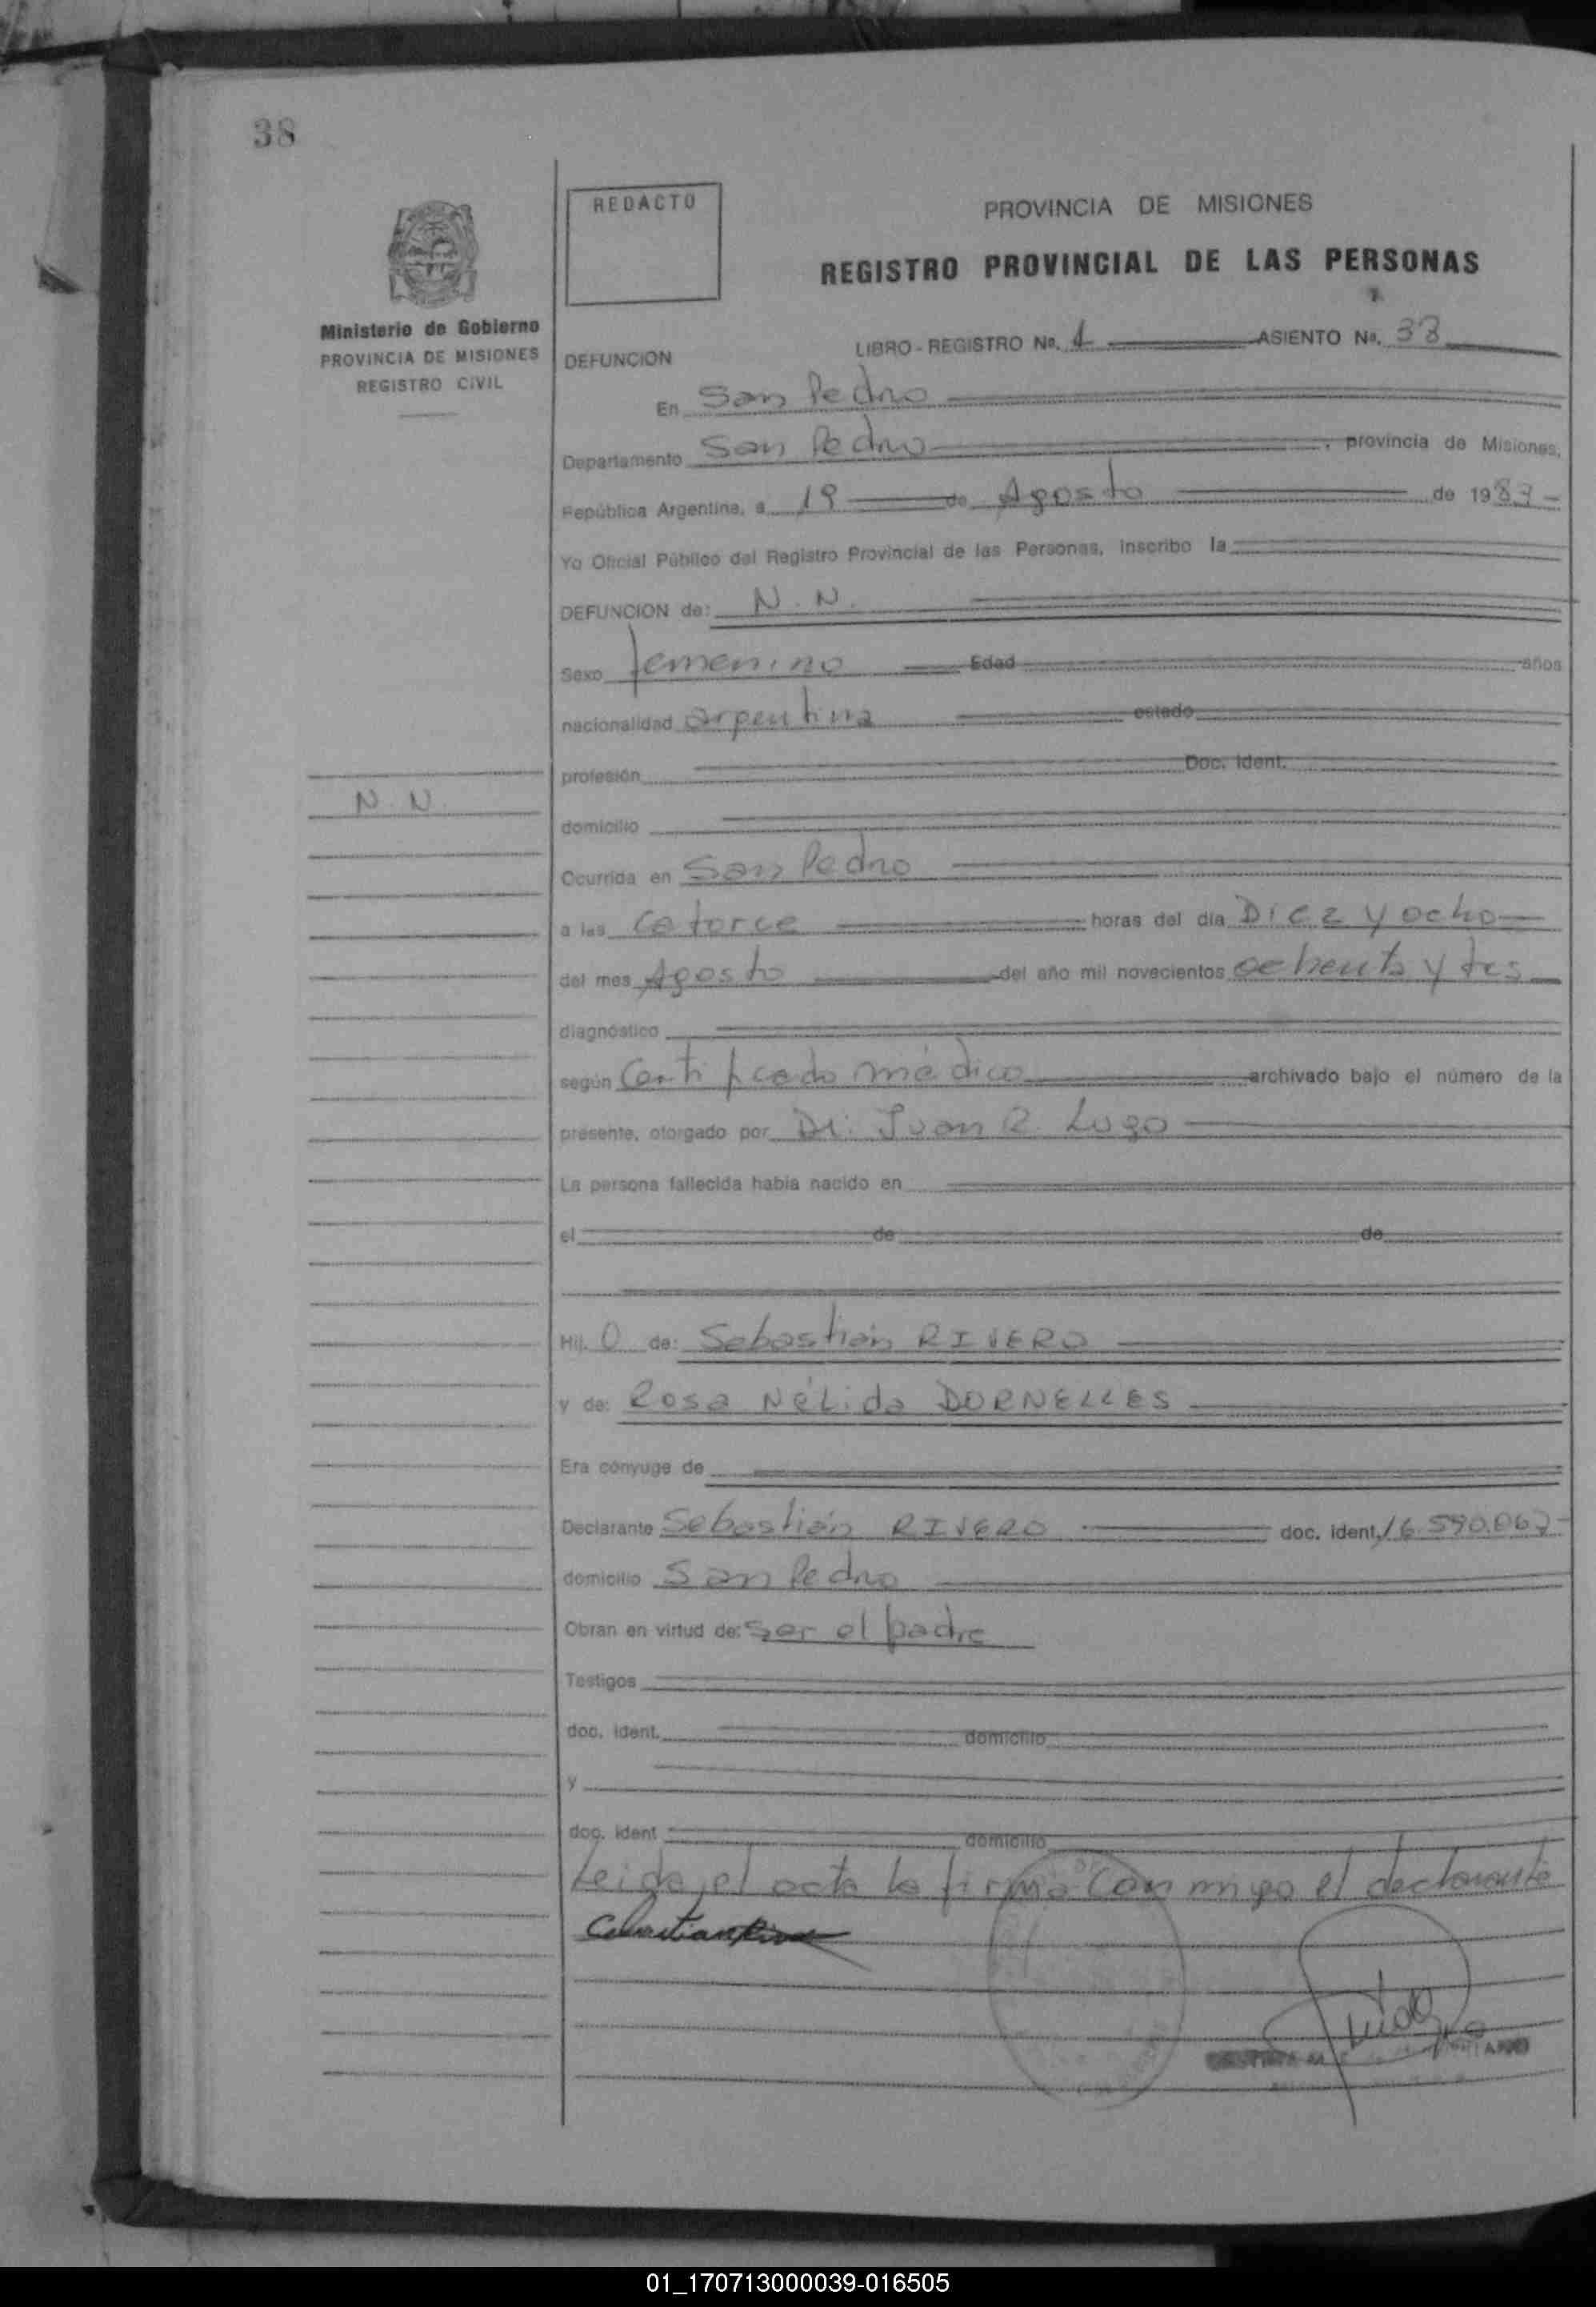 38
REDACTO
PROVINCIA DE MISIONES
REGISTRO PROVINCIAL DE LAS PERSONAS
Ministerio de Gobierno
PROVINCIA DE MISIONES
REGISTRO CIVIL
DEFUNCION
LIBRO - REGISTRO No. 1 ASIENTO No. 38
En San Pedro
Departamento San Pedro, provincia de Misiones,
República Argentina, a 19 de Agosto de 1983
Yo Oficial Público del Registro Provincial de las Personas, inscribo la
DEFUNCION de: N. N.
Sexo femenino Edad años
nacionalidad argentina estado
profesión Doc. Ident.
N. N.
domicilio
Ocurrida en San Pedro
a las Catorce horas del día Diez y ocho
del mes Agosto del año mil novecientos ochenta y tres
diagnóstico
según Certificado médico archivado bajo el número de la
presente, otorgado por Dr. Juan R. Lugo
La persona fallecida había nacido en
el de de
Hij. O de: Sebastián RIVERO
y de: Rosa Nélida DORNELLES
Era cónyuge de
Declarante Sebastián RIVERO doc. ident. 16.590.067
domicilio San Pedro
Obran en virtud de: Ser el padre
Testigos
doc. ident. domicilio
y
doc. ident domicilio
Leida el acta la firma con migo el declarante
01_170713000039-016505